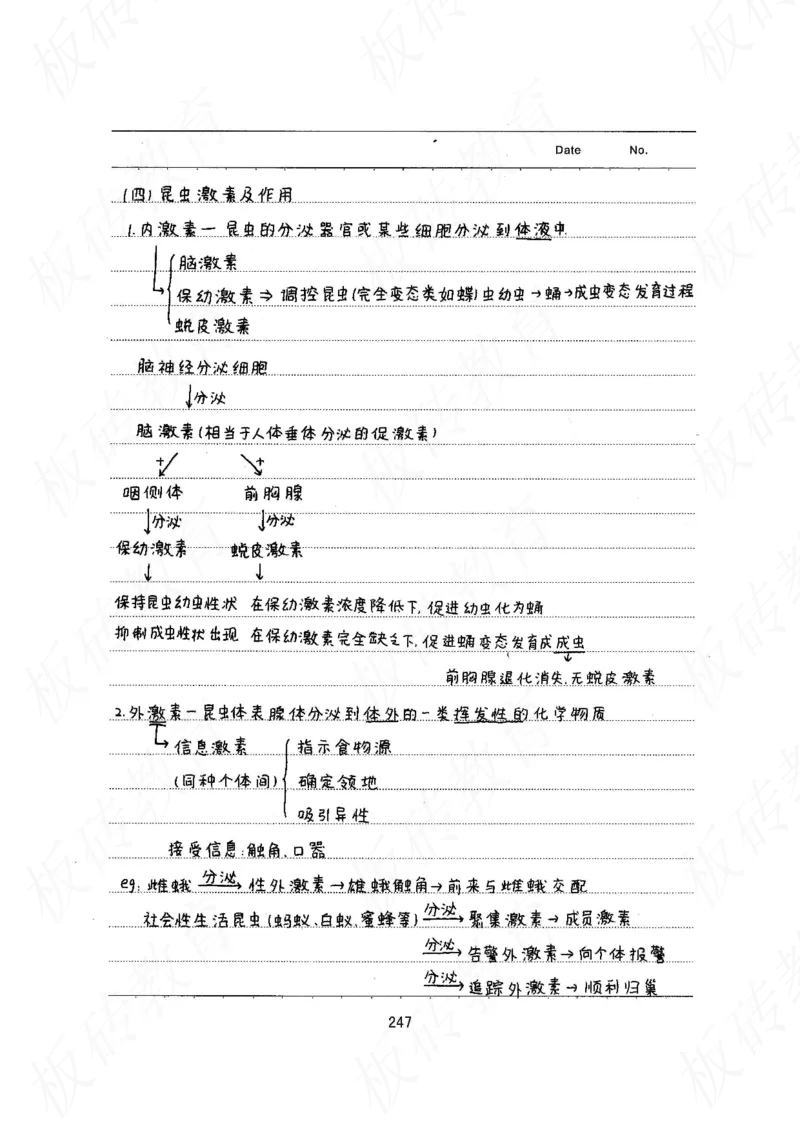 Date No.
(四)昆虫激素及作用
1.内激素—昆虫的分泌器官或某些细胞分泌到体液中
脑激素
保幼激素⇒调控昆虫(完全变态类如蝶)虫幼虫→蛹→成虫变态发育过程
蜕皮激素
脑神经分泌细胞
↓分泌
脑激素(相当于人体垂体分泌的促激素)
+ +
咽侧体 前胸腺
↓分泌 ↓分泌
保幼激素 蜕皮激素
↓ ↓
保持昆虫幼虫性状 在保幼激素浓度降低下,促进幼虫化为蛹
抑制成虫性状出现 在保幼激素完全缺乏下,促进蛹变态发育成成虫
↓
前胸腺退化消失,无蜕皮激素
2.外激素—昆虫体表腺体分泌到体外的一类挥发性的化学物质
信息激素 指示食物源
(同种个体间) 确定领地
吸引异性
接受信息:触角、口器
eg:雌蛾 分泌→ 性外激素→雄蛾触角→前来与雌蛾交配
社会性生活昆虫(蚂蚁、白蚁、蜜蜂等) 分泌→ 聚集激素→成员激素
分泌→ 告警外激素→向个体报警
分泌→ 追踪外激素→顺利归巢
247
板砖教育